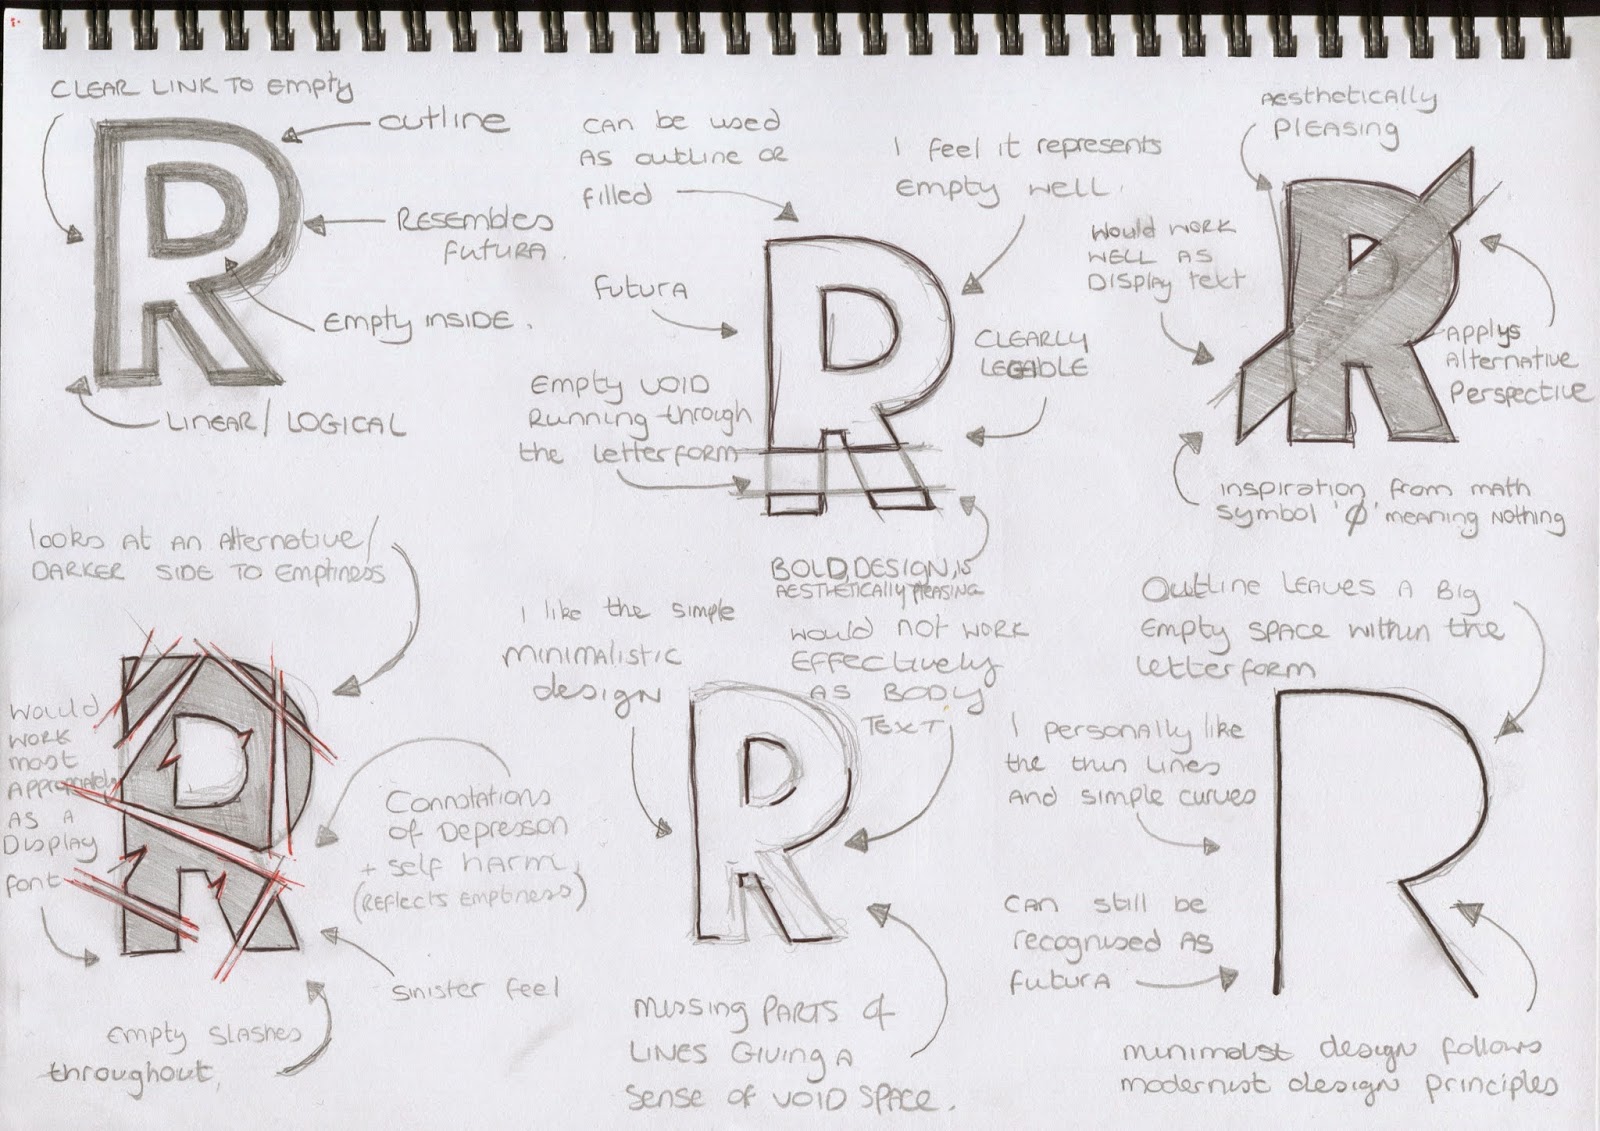 CLEAR LINK TO Empty
OUTLINE
RESEMBLES
FUTURA.
Empty INSIDE.
LINEAR/LOGICAL
R
CAN be used
AS outline OR
filled
I feel it represents
Empty well.
Futura
CLEARLY
LEGABLE
Empty VOID
Running through
the letterform
BOLD, DESIGN, is
AESTHETICALLY PLEASING
R
Aesthetically
PLEASING
Would work
well as
Display text
Applys
Alternative
Perspective
inspiration from math
symbol 'Ø' meaning Nothing
R
looks at an Alternative/
DARKER SIDE TO Emptiness
Would
work
most
Appropriately
AS A
Display
font
Connotations
of Depresson
+ self harm
(Reflects emptiness)
sinister feel
Empty slashes
throughout,
R
I like the simple
minimalistic
design
would not work
effectively
as body
text.
Missing parts &
lines giving a
sense of void space.
R
Outline leaves a big
empty space within the
letterform
I personally like
the thin lines
and simple curves
can still be
recognised as
futura
minimalist design follows
modernist design principles
R